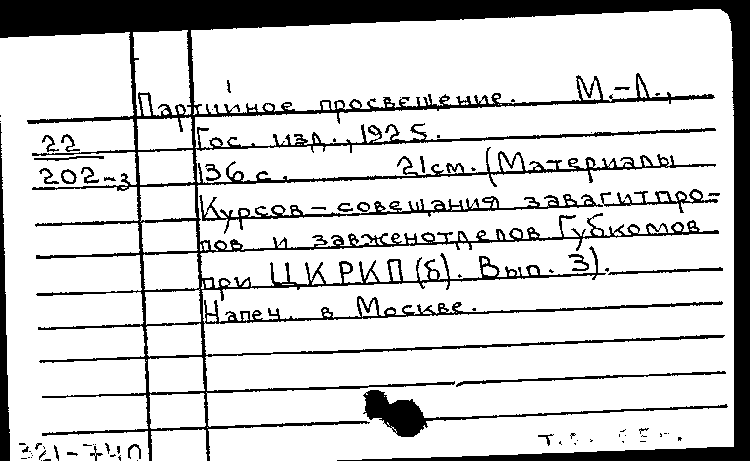 Партийное просвещение. М.-Л.,
22 Гос. изд., 1925.
202-3 136 с. 21 см. (Материалы
Курсов-совещания завагитпро=
пов и завженотделов Губкомов
при ЦК РКП(б). Вып. 3).
Напеч. в Москве.
321-740